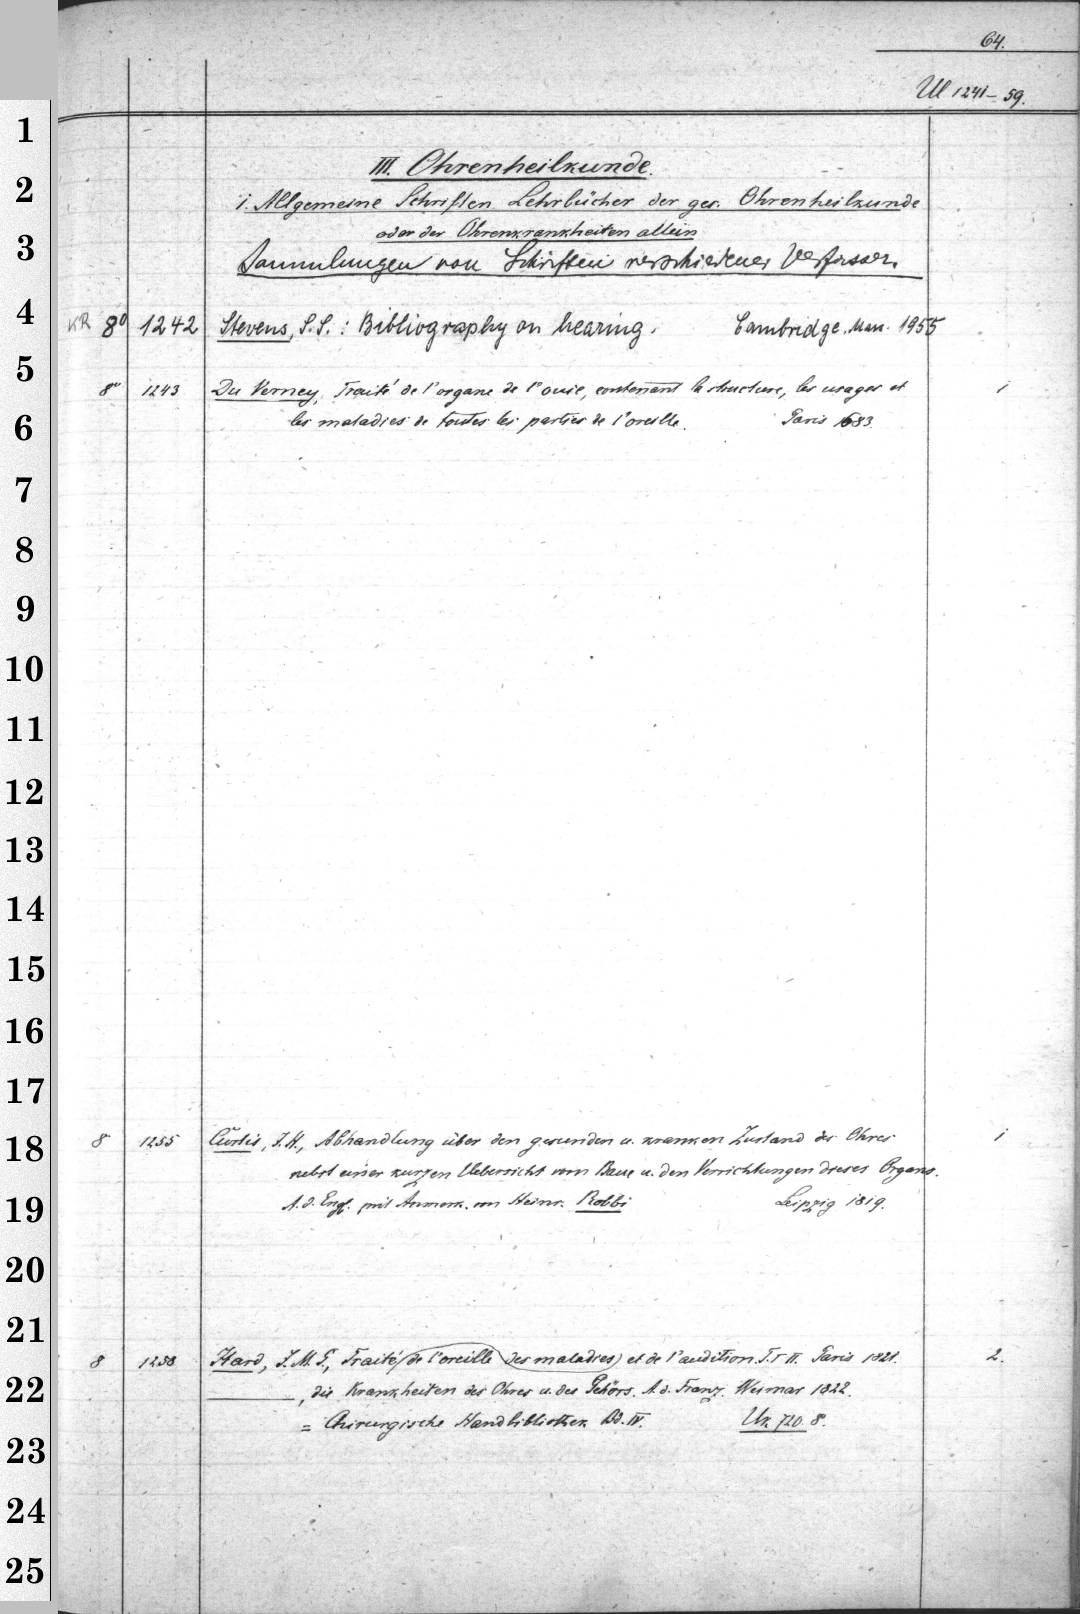 64.
Ul 1241-59.
III. Ohrenheilkunde.
1. Allgemeine Schriften Lehrbücher der ges. Ohrenheilkunde
oder der Ohrenkrankheiten allein
Sammlungen von Schriften verschiedener Verfasser.
KR 8° 1242 Stevens, S.S.: Bibliography on hearing. Cambridge, Mass. 1955
8° 1243 Du Verney, Traité de l'organe de l'ouie, contenant la structure, les usages et 1
les maladies de toutes les parties de l'oreille. Paris 1683.
8 1255 Curtis, J.H., Abhandlung über den gesunden u. kranken Zustand des Ohres 1
nebst einer kurzen Uebersicht vom Baue u. den Verrichtungen dieses Organs.
A. d. Engl. mit Anmerk. von Heinr. Robbi Leipzig 1819.
8 1258 Itard, J.M.G., Traité (de l'oreille (des maladies) et de l'audition. T. I II. Paris 1821. 2.
, die Krankheiten des Ohres u. des Gehörs. A. d. Franz. Weimar 1822.
= Chirurgische Handbibliothek Bd. IV. Uk 720. 8.
1
2
3
4
5
6
7
8
9
10
11
12
13
14
15
16
17
18
19
20
21
22
23
24
25